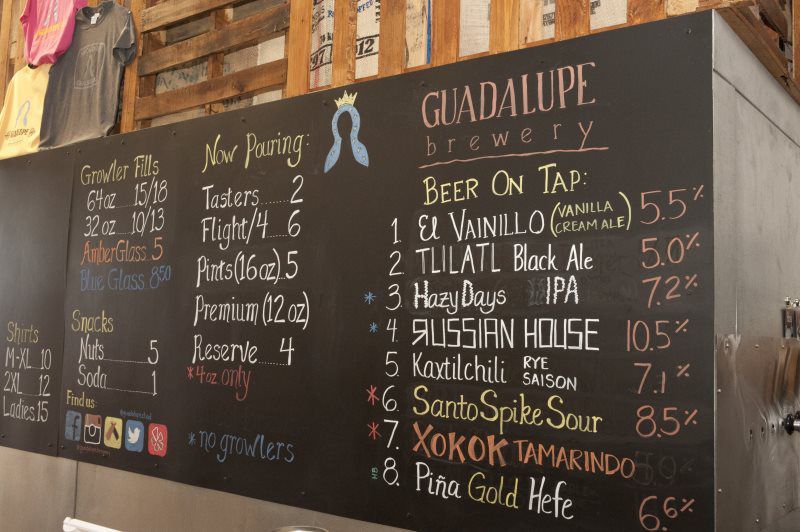 GUADALUPE
brewery
BEER ON TAP:
1. El VAINILLO (VANILLA CREAM ALE) 5.5%
2. TLILATL Black Ale 5.0%
* 3. Hazy Days IPA 7.2%
* 4. RUSSIAN HOUSE 10.5%
5. Kaxtilchili RYE SAISON 7.1%
* 6. Santo Spike Sour 8.5%
* 7. XOKOK TAMARINDO
HB 8. Piña Gold Hefe 6.6%
Now Pouring:
Tasters 2
Flight/4 6
Pints (16oz) 5
Premium (12oz)
Reserve 4
*4oz only
*no growlers
Growler Fills
64oz 15/18
32oz 10/13
Amber Glass 5
Blue Glass 8.50
Snacks
Nuts 5
Soda 1
Find us:
Shirts
M-XL 10
2XL 12
Ladies 15